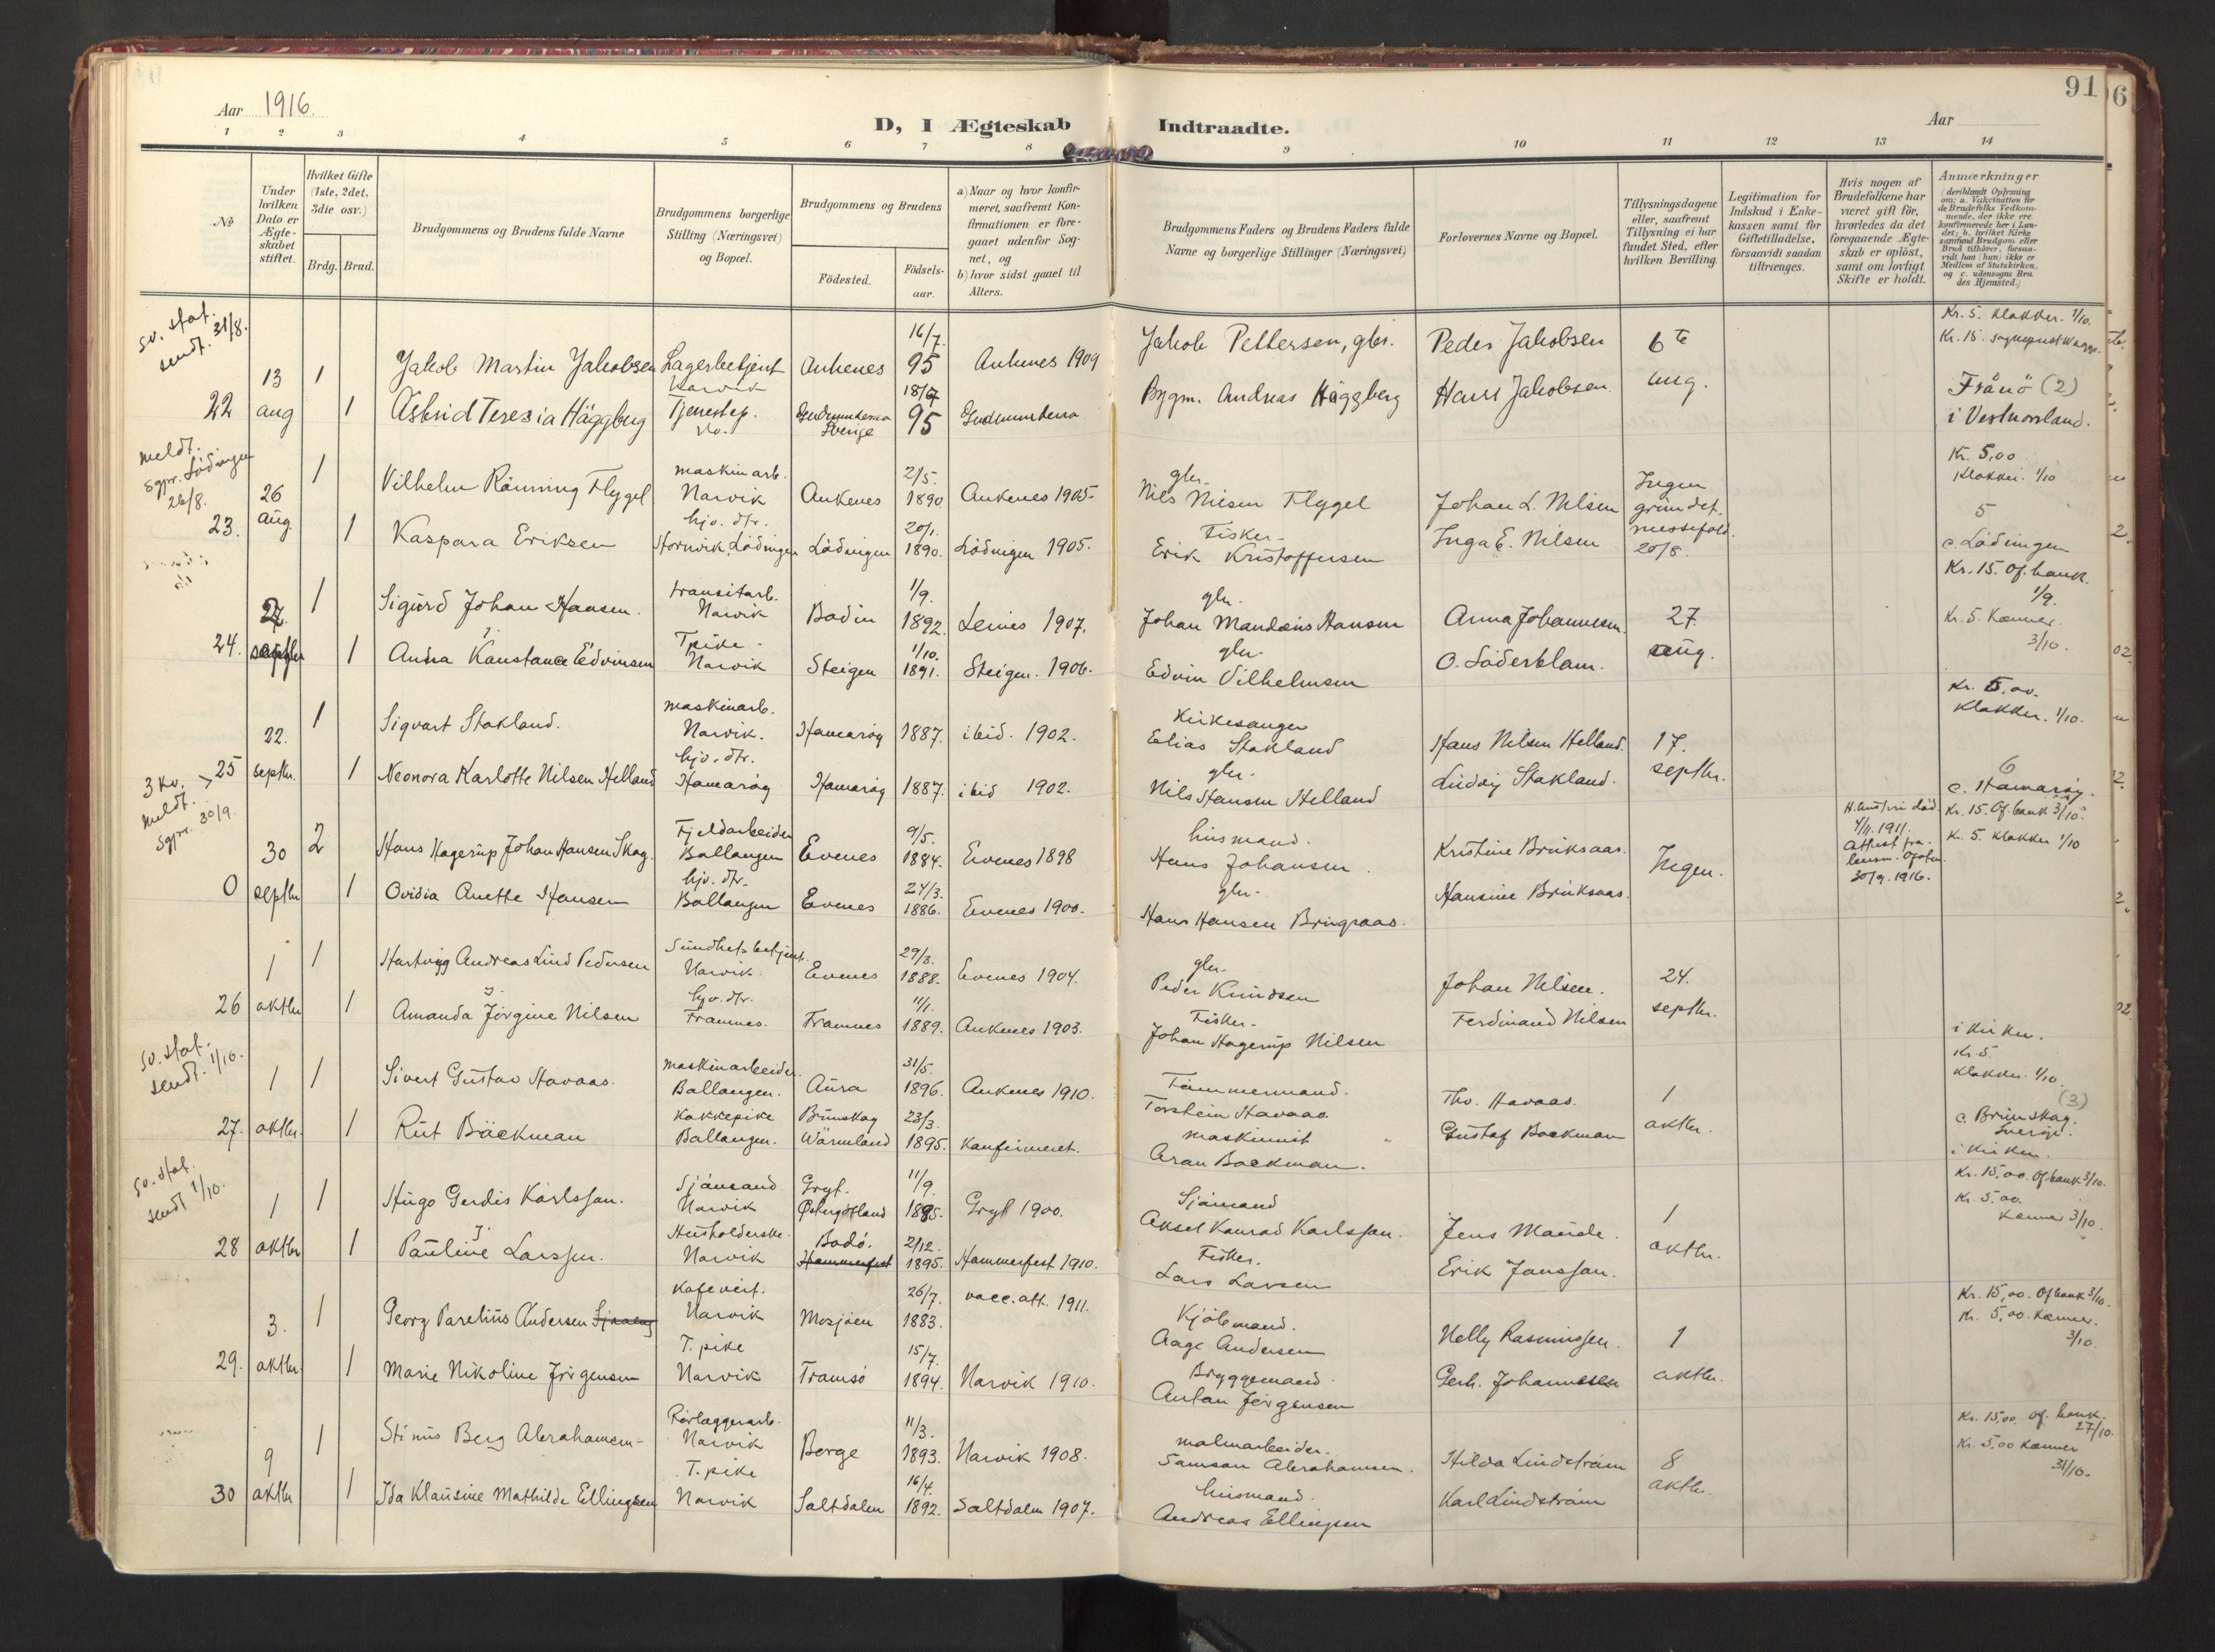 91
Aar 1916.
D, I Ægteskab Indtraadte.
Aar
1 2 3 4 5 6 7 8 9 10 11 12 13 14
No
Under hvilken Dato er Ægteskabet stiftet.
Hvilket Gifte (1ste, 2det, 3die osv.)
Brdg. Brud.
Brudgommens og Brudens fulde Navne
Brudgommens borgerlige Stilling (Næringsvei) og Bopæl.
Brudgommens og Brudens
Fødested.
Fødselsaar.
a) Naar og hvor konfirmeret, saafremt Konfirmationen er foregaaet udenfor Sognet, og
b) hvor sidst gaaet til Alters.
Brudgommens Faders og Brudens Faders fulde Navne og borgerlige Stillinger (Næringsvei)
Forlovernes Navne og Bopæl.
Tillysningsdagene eller, saafremt Tillysning ei har fundet Sted, efter hvilken Bevilling.
Legitimation for Indskud i Enkekassen samt for Giftetilladelse, forsaavidt saadan tiltrænges.
Hvis nogen af Brudefolkene har været gift før, hvorledes da det foregaaende Ægteskab er opløst, samt om lovligt Skifte er holdt.
Anmærkninger
(deriblandt Oplysning om: a. Vakcination for de Brudefolks Vedkommende, der ikke ere konfirmerede her i Landet; b. hvilket Kirkesamfund Brudgom eller Brud tilhører, forsaavidt han (hun) ikke er Medlem af Statskirken, og c. udensogns Brudes Hjemsted.)
sv. stat. sendt. 31/8.
22 13 aug
1 Jakob Martin Jakobsen Lagerbetjent Narvik Ankenes 16/7 95 Ankenes 1909 Jakob Pettersen, gbr. Peder Jakobsen 6te aug. Kr. 5. klokker. 1/10.
Kr. 15. sogneprest
1 Astrid Teresia Häggberg Tjenestep. do. Sverige 18/7 95 Bygm. Andreas Häggberg Hans Jakobsen Frånö (2) i Vestnorrland.
meldt. sgpr. Lödingen 26/8.
23. 26 aug.
1 Vilhelm Rönning Flygel maskinarb. Narvik Ankenes 2/5. 1890 Ankenes 1905. gbr. Nils Nilsen Flygel Johan L. Nilsen Ingen grundet messefald. 20/8. Kr. 5,00 klokker. 1/10
1 Kaspara Eriksen hjv. dtr. Lödingen Lödingen 20/1. 1890. Lödingen 1905. Fisker. Erik Kristoffersen Inga E. Nilsen 5 c. Lödingen
24. 27.
1 Sigurd Johan Hansen. transitarb. Narvik Bodin 1/9. 1892. Leines 1907. gbr. Johan Mandæus Hansen Anna Johannesen. 27. aug. Kr. 15. Of. bank. 1/9.
1 Anna Konstance Edvinsen T.pike. Narvik Steigen 1/10. 1891. Steigen. 1906. gbr. Edvin Vilhelmsen O. Söderblom. Kr. 5. Kæmner. 3/10.
3 kv. meldt. sgpr. 30/9.
25 22. septbr.
1 Sigvart Stokland. maskinarb. Narvik. Hamarøy 1887. ibid. 1902. Kirkesanger Elias Stokland Hans Nilsen Helland. 17. septbr. Kr. 5,00. klokker. 1/10.
1 Neonora Karlotte Nilsen Helland hjv. dtr. Hamarøy Hamarøy 1887. ibid 1902. gbr. Nils Hansen Helland Ludvig Stokland. 6 c. Hamarøy.
0 30 septbr
2 Hans Hagerup Johan Hansen Skog. Fjeldarbeider Ballangen Evenes 9/5. 1884. Evenes 1898 husmand. Hans Johansen Kristine Bruksaas. Ingen. H. hustru död 4/11. 1911. Attest fra lensm. Ofoten 30/9. 1916. Kr. 15. Of. bank 3/10. Kr. 5. klokker 1/10
1 Ovidia Anette Hansen hjv. dtr. Ballangen Evenes 24/3. 1886. Evenes 1900. gbr. Hans Hansen Brugsaas. Hansine Bruksaas.
26 1 oktbr
1 Hartvig Andreas Lind Pedersen Sundhetsbetjent. Narvik. Evenes 29/3. 1888. Evenes 1904. gbr. Peder Knudsen Johan Nilsen. 24. septbr.
1 Amanda Jörgine Nilsen hjv. dtr. Framnes. Framnes 11/1. 1889. Ankenes 1903. Fisker. Johan Hagerup Nilsen Ferdinand Nilsen
sv. stat. sendt. 1/10.
27. 1 oktbr.
1 Sivert Gustav Hovaas. maskinarbeider. Ballangen. Aura 31/5. 1896. Ankenes 1910. Tömmermand. Torstein Hovaas Tho. Hovaas. 1 oktbr. i kirken. Kr. 5. klokker. 1/10.
1 Rut Bäckman Kokkepike Ballangen. Brunskog Wärmland 23/3. 1895. konfirmeret. maskinist Aron Backman. Gustaf Backman (3) c. Brunskog. Sverige.
sv. stat. sendt 1/10.
28 1 oktbr
1 Hugo Gerdis Karlsson. Sjömand Narvik Gryt. Østergötland 11/9. 1885. Gryt 1900. Sjömand Aksel Konrad Karlsson. Jens Maude. 1 oktbr. i kirken. Kr. 15,00. Of. bank 3/10.
1 Pauline Larssen. Husholderske. Narvik Bodö. Hammerfest 2/12. 1895. Hammerfest 1910. Fisker. Lars Larsen Erik Jansson. Kr. 5,00. Kæmner 3/10.
29. 3. oktbr.
1 Georg Parelius Andersen Kafevert. Narvik Mosjöen 26/7. 1883. vacc. att. 1911. Kjöbmand. Aage Andersen Nelly Rasmussen. 1 oktbr. Kr. 15,00. Of bank 3/10.
1 Marie Nikoline Jörgensen T. pike Narvik Tromsö 15/7. 1894. Narvik 1910. Bryggemand. Anton Jörgensen Gerh. Johannesen Kr. 5,00. Kæmner. 3/10.
30 9 oktbr
1 Stinius Berg Abrahamsen Rörlæggerarb. Narvik Borge 11/3. 1893. Narvik 1908. malmarbeider. Samson Abrahamsen. Hilda Lindström 8 oktbr. Kr. 15,00 Of. bank. 27/10.
1 Ida Klausine Mathilde Ellingsen T. pike Narvik Saltdalen 16/4. 1892. Saltdalen 1907. husmand. Andreas Ellingsen Karl Lindström Kr. 5,00 Kæmner 31/10.